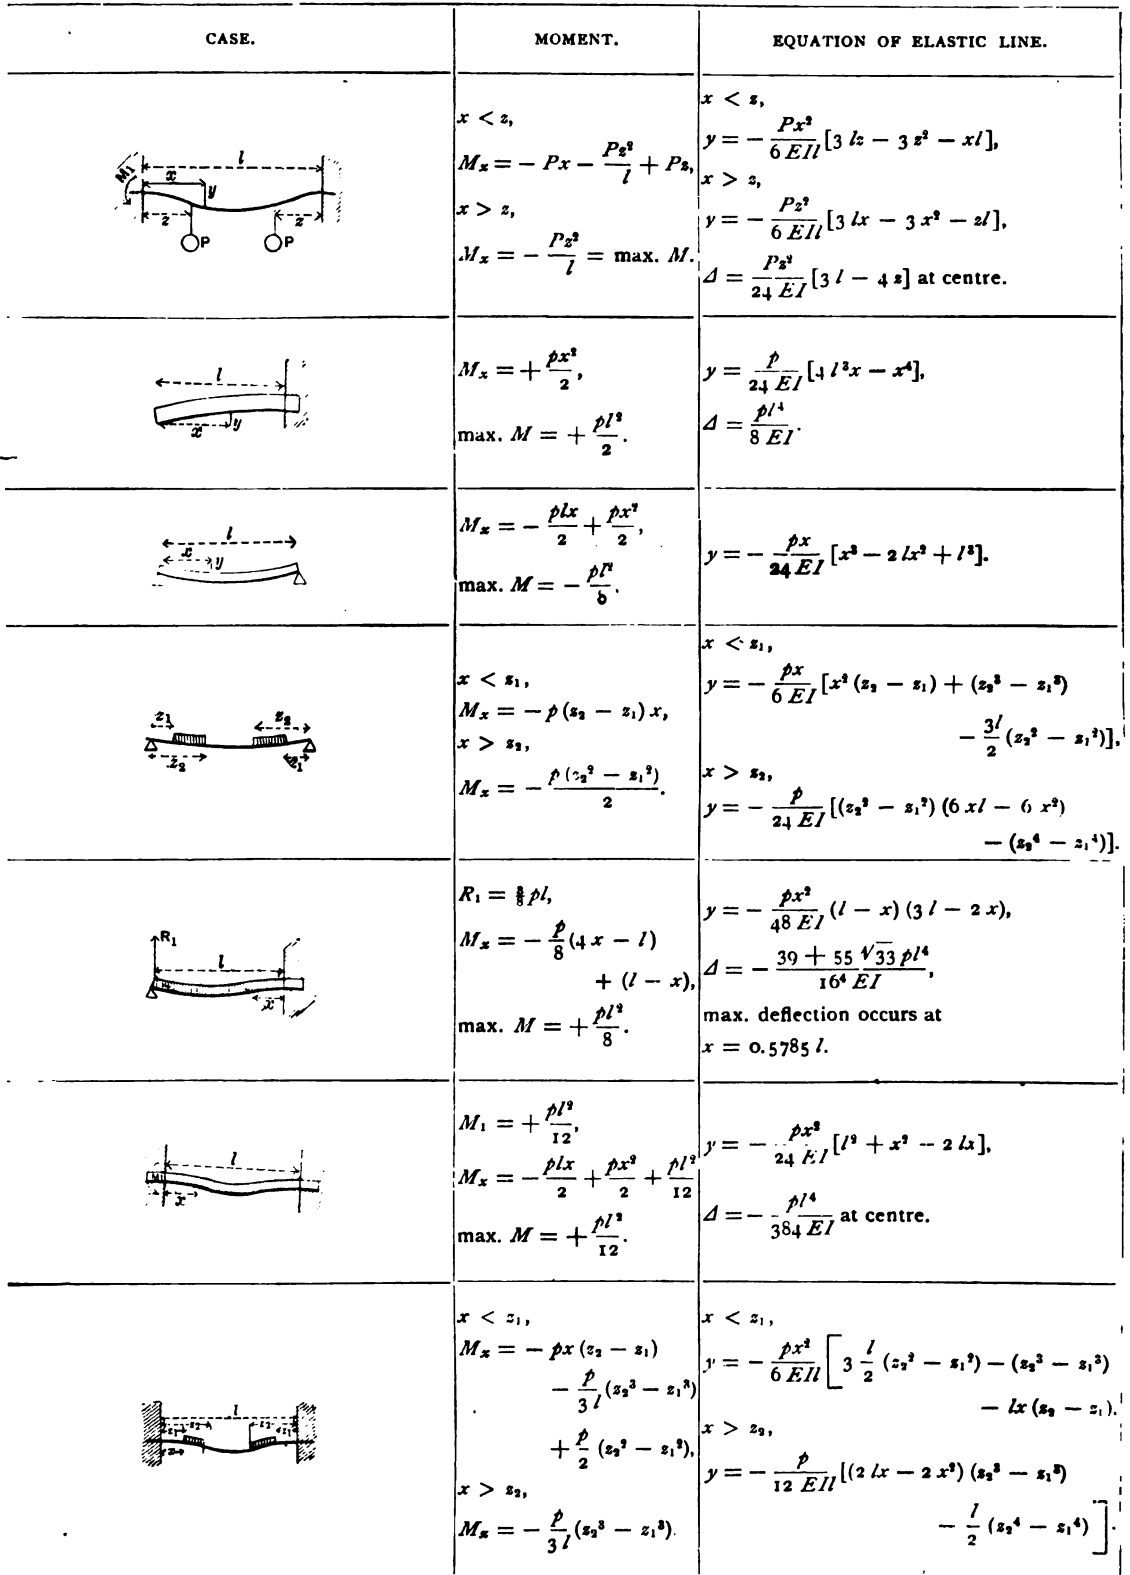 CASE. MOMENT. EQUATION OF ELASTIC LINE.
M₁ l x y z z P P
x < z,
Mₓ = − Px − Pz²/l + Pz,
x > z,
Mₓ = − Pz²/l = max. M.
x < z,
y = − Px²/6 EIl [3 lz − 3 z² − xl],
x > z,
y = − Pz²/6 EIl [3 lx − 3 x² − zl],
Δ = Pz²/24 EI [3 l − 4 z] at centre.
l x y
Mₓ = + px²/2,
max. M = + pl²/2.
y = p/24 EI [4 l³x − x⁴],
Δ = pl⁴/8 EI.
l x y
Mₓ = − plx/2 + px²/2,
max. M = − pl²/
y = − px/24 EI [x³ − 2 lx² + l³].
z₁ z₂ z₂ z₁
x < z₁,
Mₓ = − p (z₂ − z₁) x,
x > z₂,
Mₓ = − p (z₂² − z₁²)/2.
x < z₁,
y = − px/6 EI [x² (z₂ − z₁) + (z₂³ − z₁³)
− 3l/2 (z₂² − z₁²)],
x > z₂,
y = − p/24 EI [(z₂² − z₁²) (6 xl − 6 x²)
− (z₂⁴ − z₁⁴)].
R₁ l x
R₁ = ⅜ pl,
Mₓ = − p/8 (4 x − l)
+ (l − x),
max. M = + pl²/8.
y = − px²/48 EI (l − x) (3 l − 2 x),
Δ = − 39 + 55 √33 pl⁴/16⁴ EI,
max. deflection occurs at
x = 0.5785 l.
M₁ l x
M₁ = + pl²/12,
Mₓ = − plx/2 + px²/2 + pl²/12
max. M = + pl²/12.
y = − px²/24 EI [l² + x² − 2 lx],
Δ = − pl⁴/384 EI at centre.
l z₁ z₂ z₂ z₁ x
x < z₁,
Mₓ = − px (z₂ − z₁)
− p/3 l (z₂³ − z₁³)
+ p/2 (z₂² − z₁²),
x > z₂,
Mₓ = − p/3 l (z₂³ − z₁³).
x < z₁,
y = − px²/6 EIl [3 l/2 (z₂² − z₁²) − (z₂³ − z₁³)
− lx (z₂ − z₁).
x > z₂,
y = − p/12 EIl [(2 lx − 2 x²) (z₂³ − z₁³)
− l/2 (z₂⁴ − z₁⁴)].